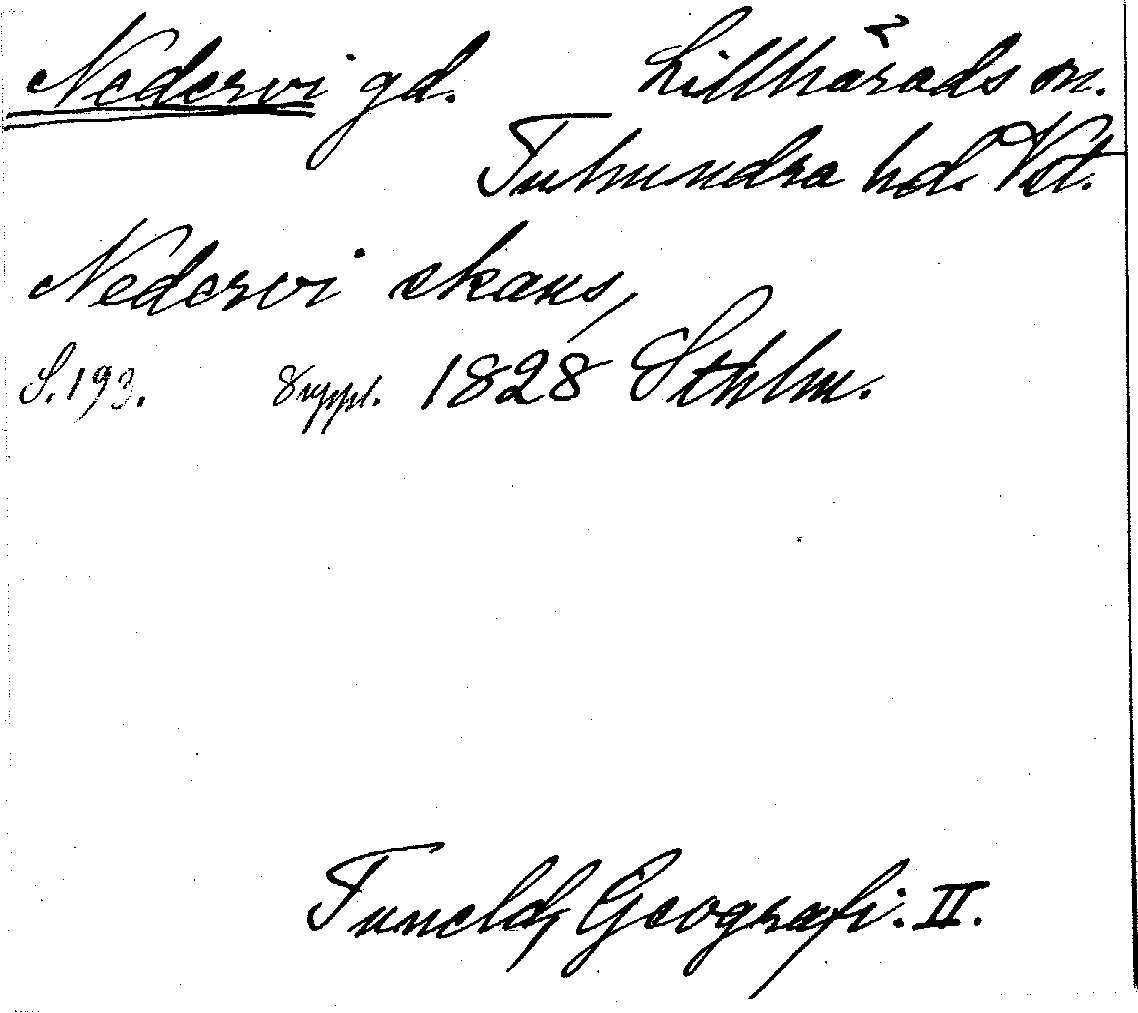 Nedervi gd. Lillhärads sn.
Tuhundra hd. Vst.
Nedervi skans,
S. 193. Suppl. 1828 Sthlm.
Tunelds Geografi. II.